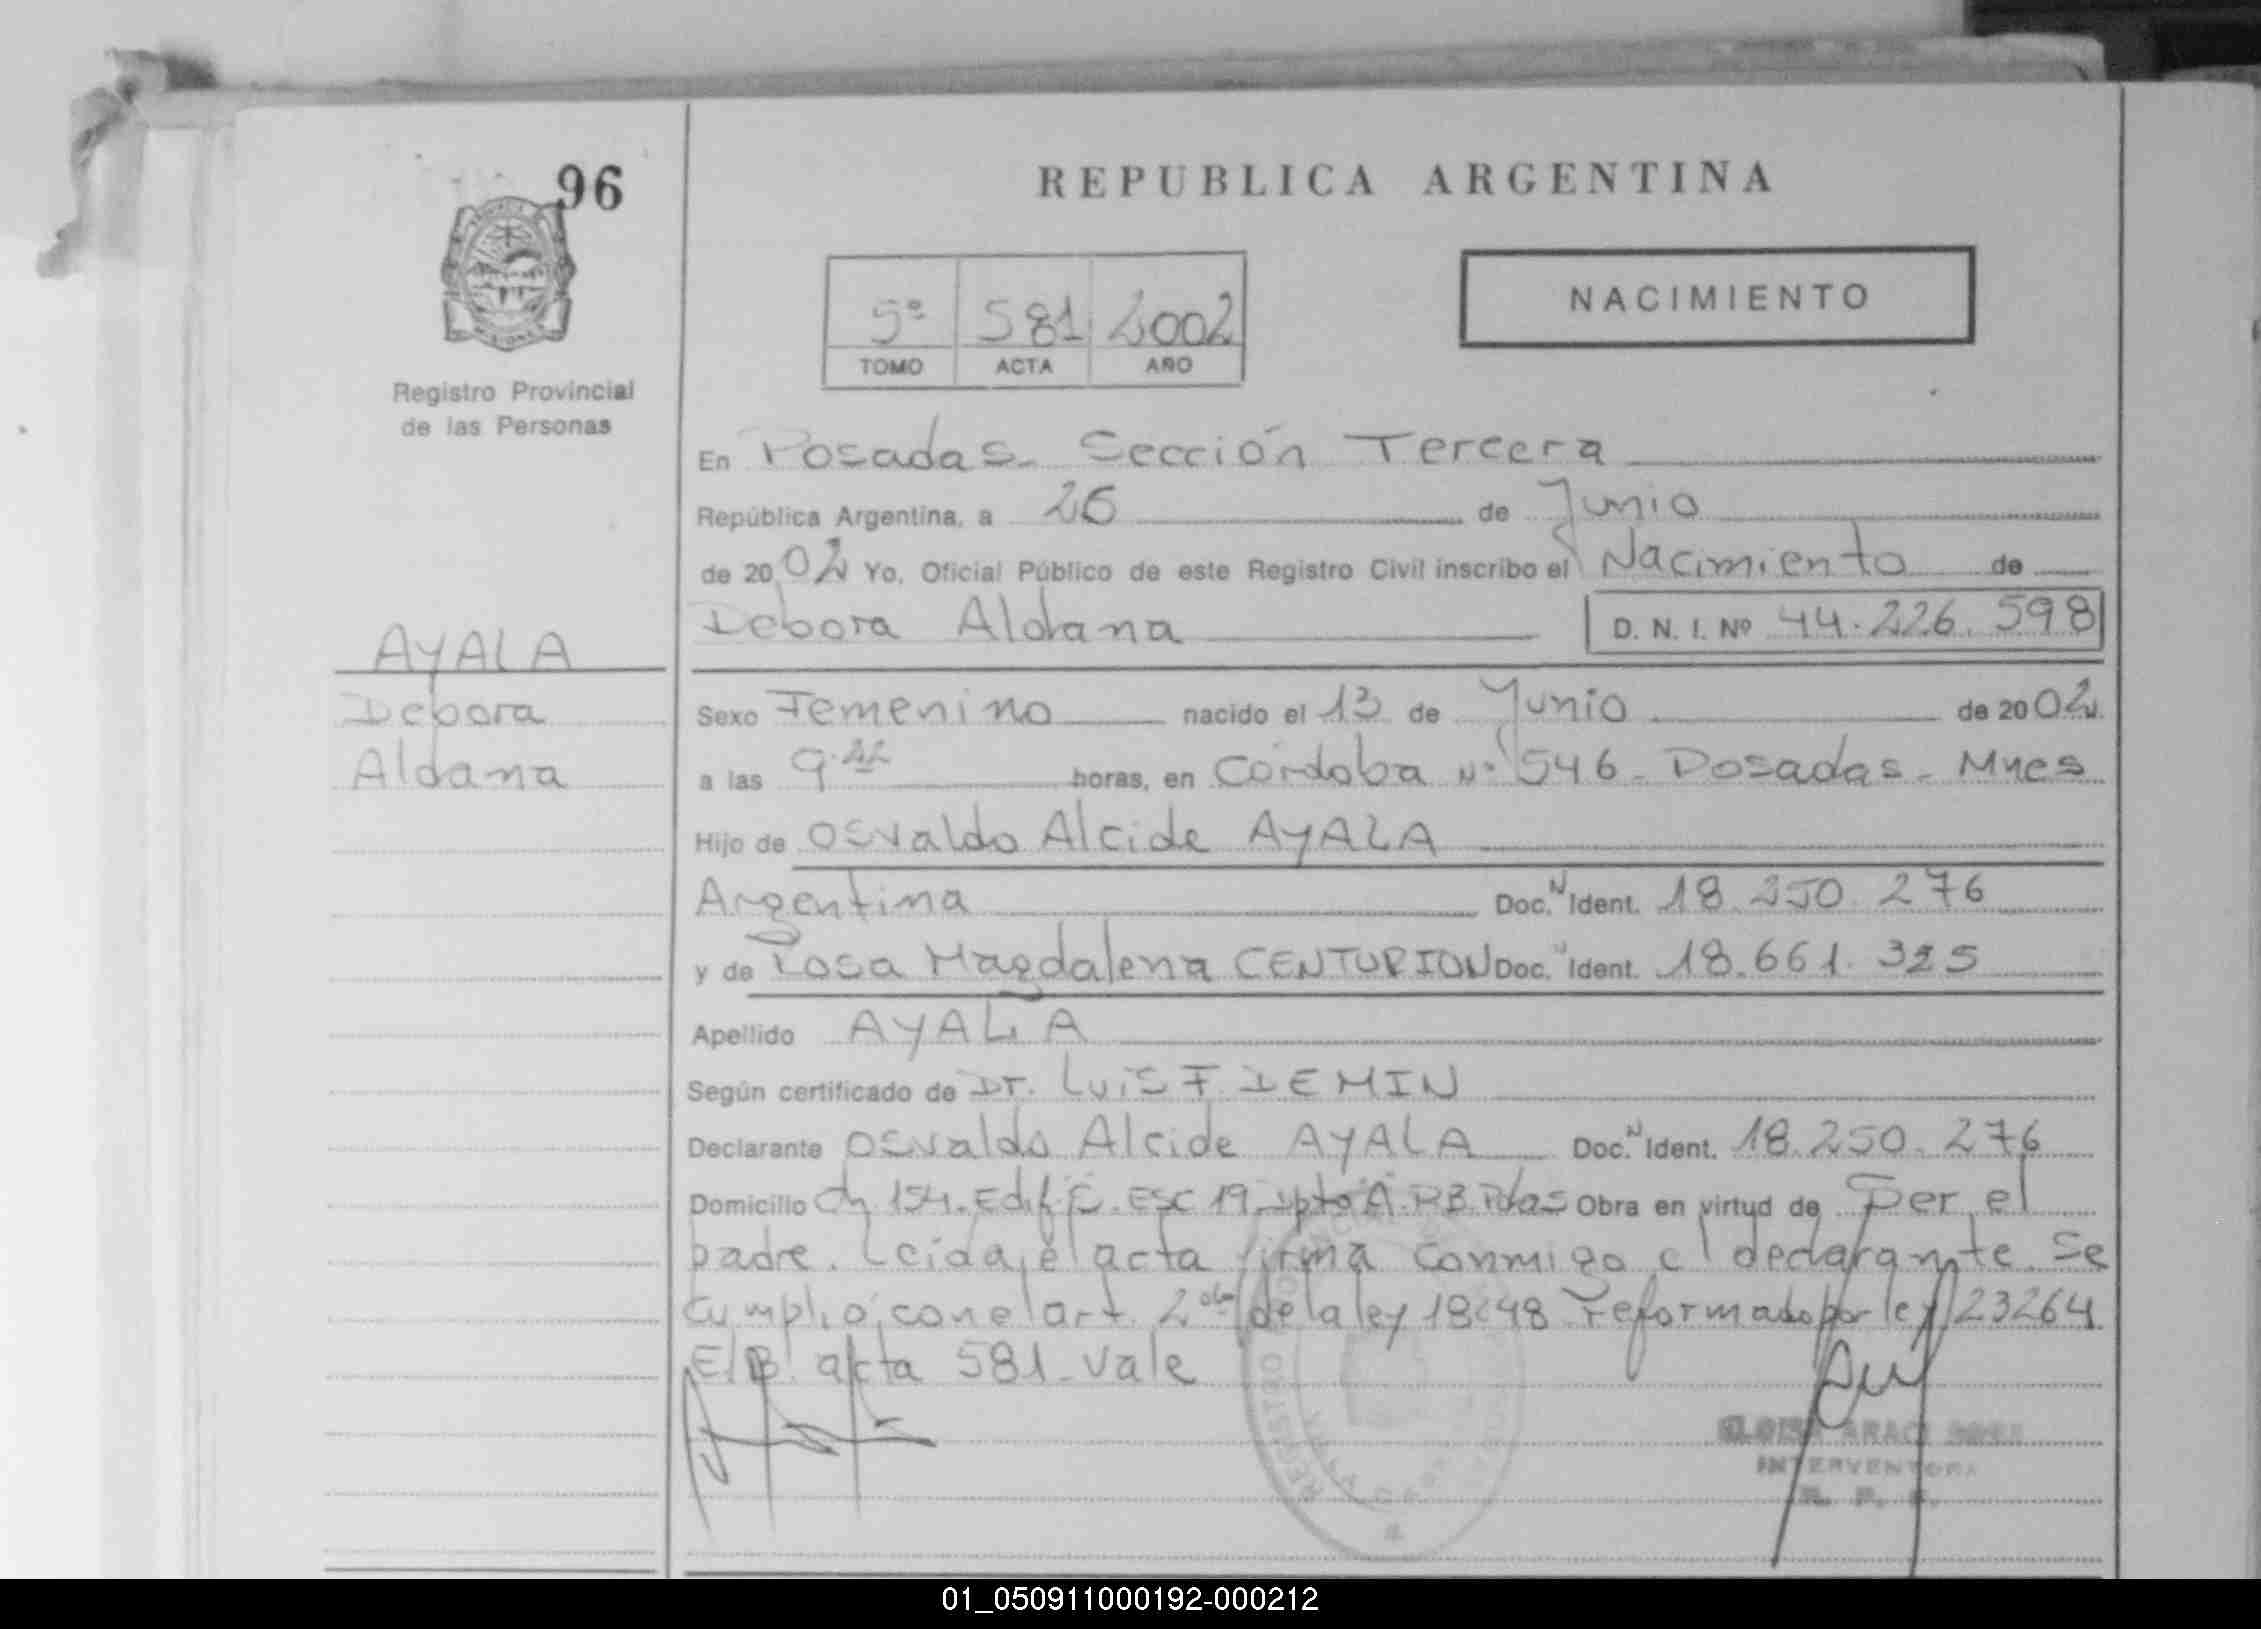 96
REPUBLICA ARGENTINA
NACIMIENTO
5º 581 2002
TOMO ACTA AÑO
Registro Provincial
de las Personas
En Posadas - Sección Tercera
República Argentina, a 26 de Junio
de 2002 Yo, Oficial Público de este Registro Civil inscribo el Nacimiento de
Debora Aldana D. N. I. Nº 44.226.598
AYALA
Debora
Aldana
Sexo Femenino nacido el 13 de Junio de 2002
a las 9 horas, en Córdoba Nº 546 - Posadas - Mnes
Hijo de Osvaldo Alcide AYALA
Argentina Doc. N Ident. 18.250.276
y de Rosa Magdalena CENTURION Doc. N Ident. 18.661.325
Apellido AYALA
Según certificado de Dr. Luis F. DEMIN
Declarante Osvaldo Alcide AYALA Doc. N Ident. 18.250.276
Domicilio Ch 154. Edif C. Esc 19 Dpto A. Pdas Obra en virtud de Ser el
padre. Leida el acta firma conmigo el declarante. Se
cumplió con el art. 2 de la ley 18248 reformado por ley 23264
E/B acta 581 - vale
REGISTRO PROVINCIAL
INTERVENTORA
R. P. P.
01_050911000192-000212